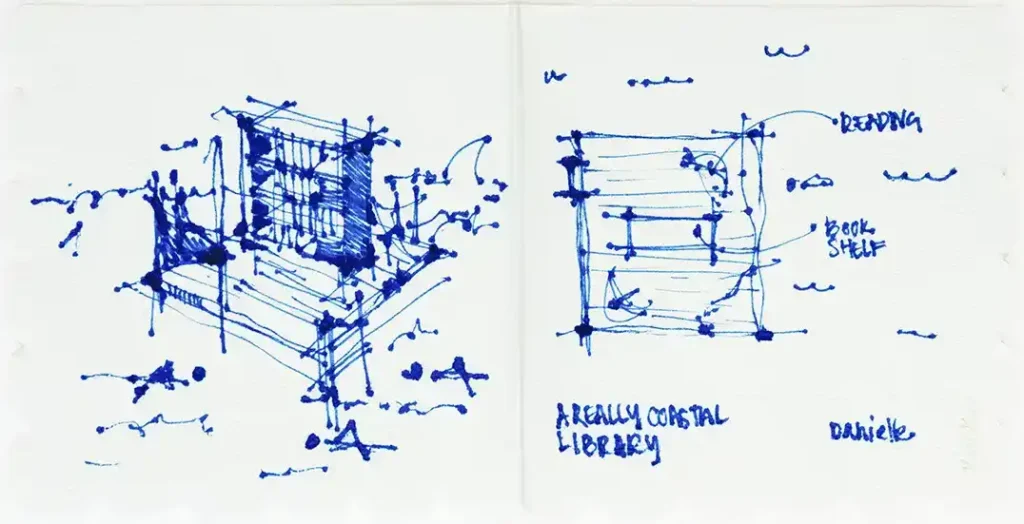 READING
BOOK
SHELF
A REALLY COASTAL
LIBRARY
Danielle